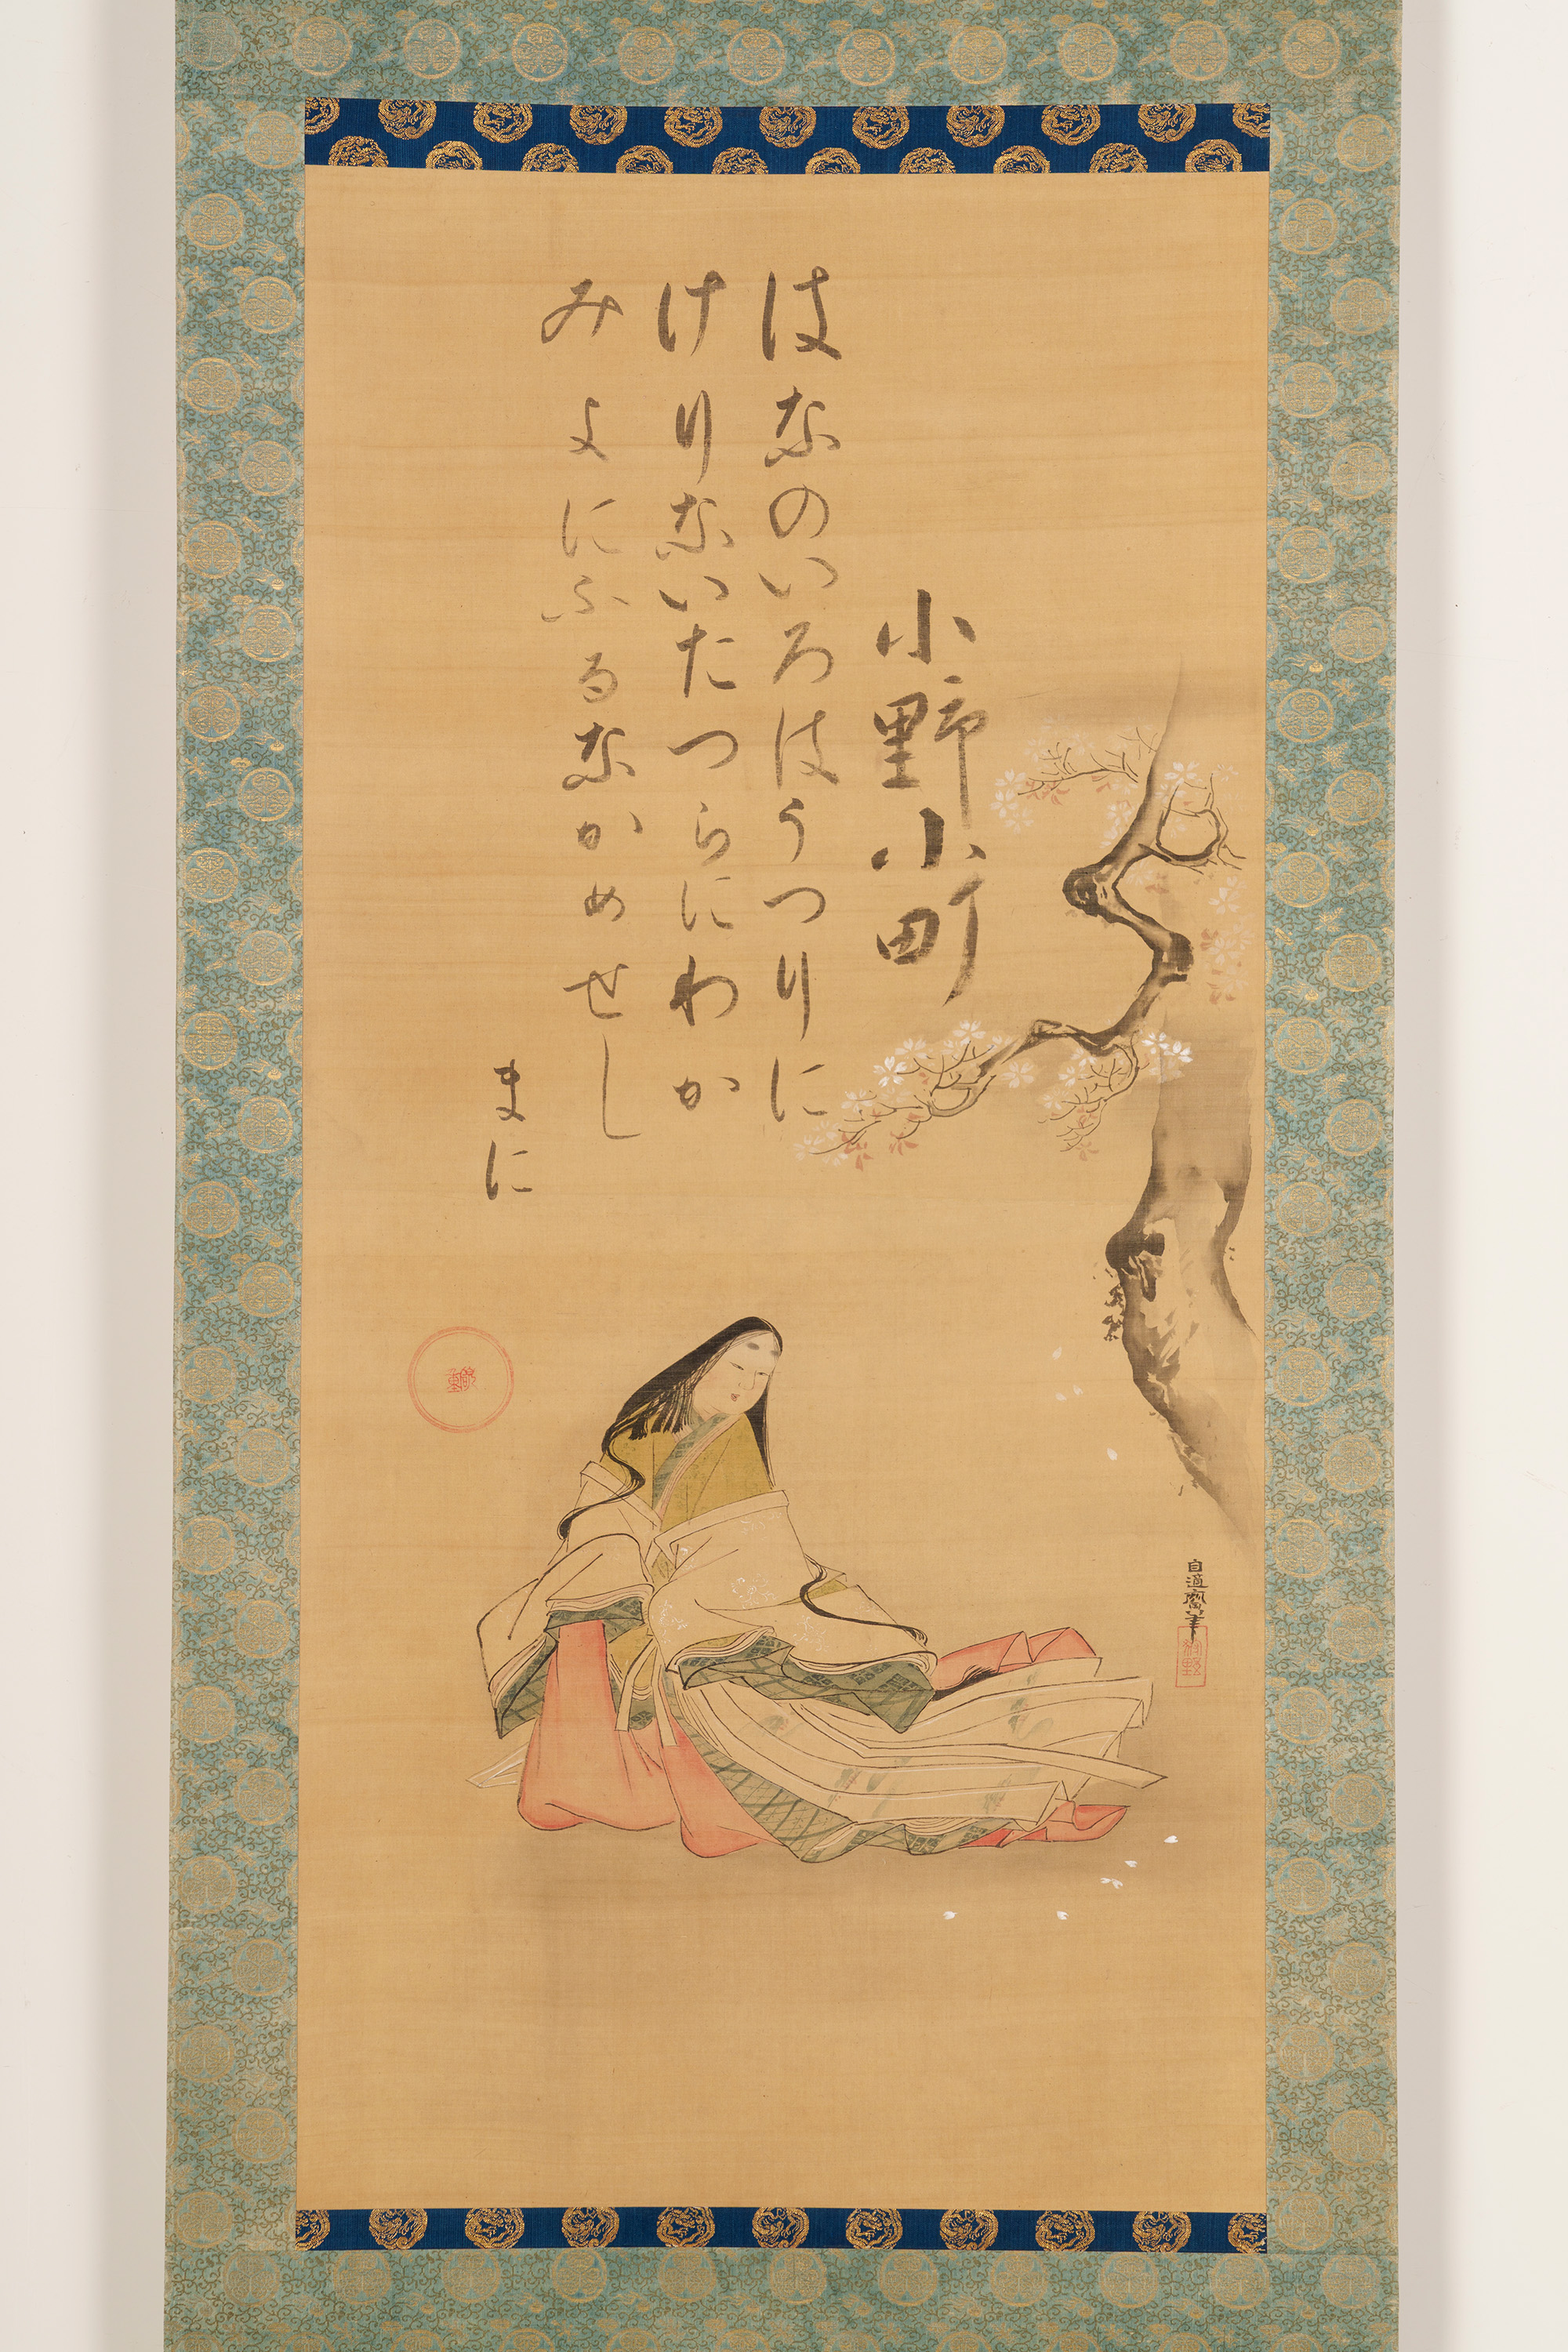 小野小町
はなのいろはうつりに
けりないたつらにわか
みよにふるなかめせし
まに
自適齋筆